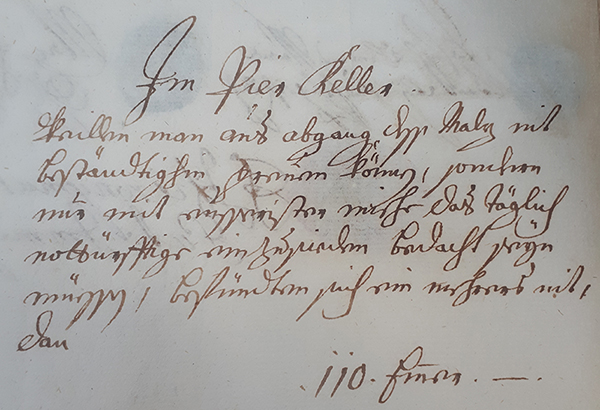 Im Pier Keller
Weillen man aus abgang dess Malz nit
beständtighin preuen könen, sondern
nur mit eusseristen miehe das täglich
nottürfftige einzusieden bedacht seyn
müessen, befündten sich ein mehrers nit,
dan
110. Emer. —.